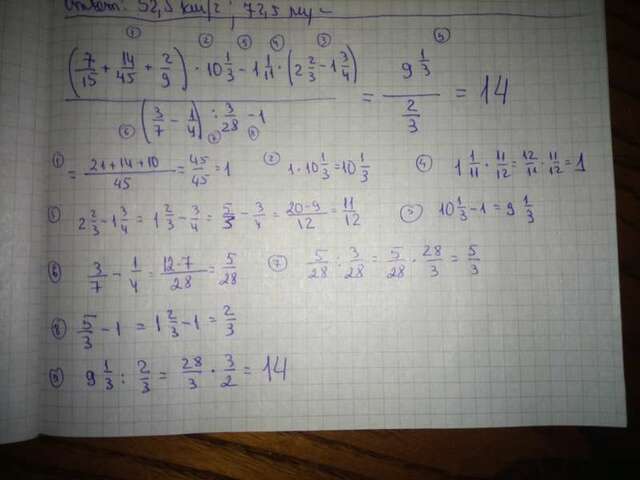 Ответ: 52,5 км/г ; 72,5
① ② ⑤ ④ ③ ⑨
(7/15 + 14/45 + 2/9) · 10 1/3 - 1 1/11 · (2 2/3 - 1 3/4)
(3/7 - 1/4) : 3/28 - 1
= 9 1/3 / 2/3 = 14
⑥ ⑦ ⑧
① = 21+14+10/45 = 45/45 = 1 ② 1·10 1/3 = 10 1/3 ④ 1 1/11 · 11/12 = 12/11 · 11/12 = 1
2 2/3 - 1 3/4 = 1 2/3 - 3/4 = 5/3 - 3/4 = 20-9/12 = 11/12 10 1/3 - 1 = 9 1/3
⑥ 3/7 - 1/4 = 12-7/28 = 5/28 ⑦ 5/28 : 3/28 = 5/28 · 28/3 = 5/3
⑧ 5/3 - 1 = 1 2/3 - 1 = 2/3
⑨ 9 1/3 : 2/3 = 28/3 · 3/2 = 14